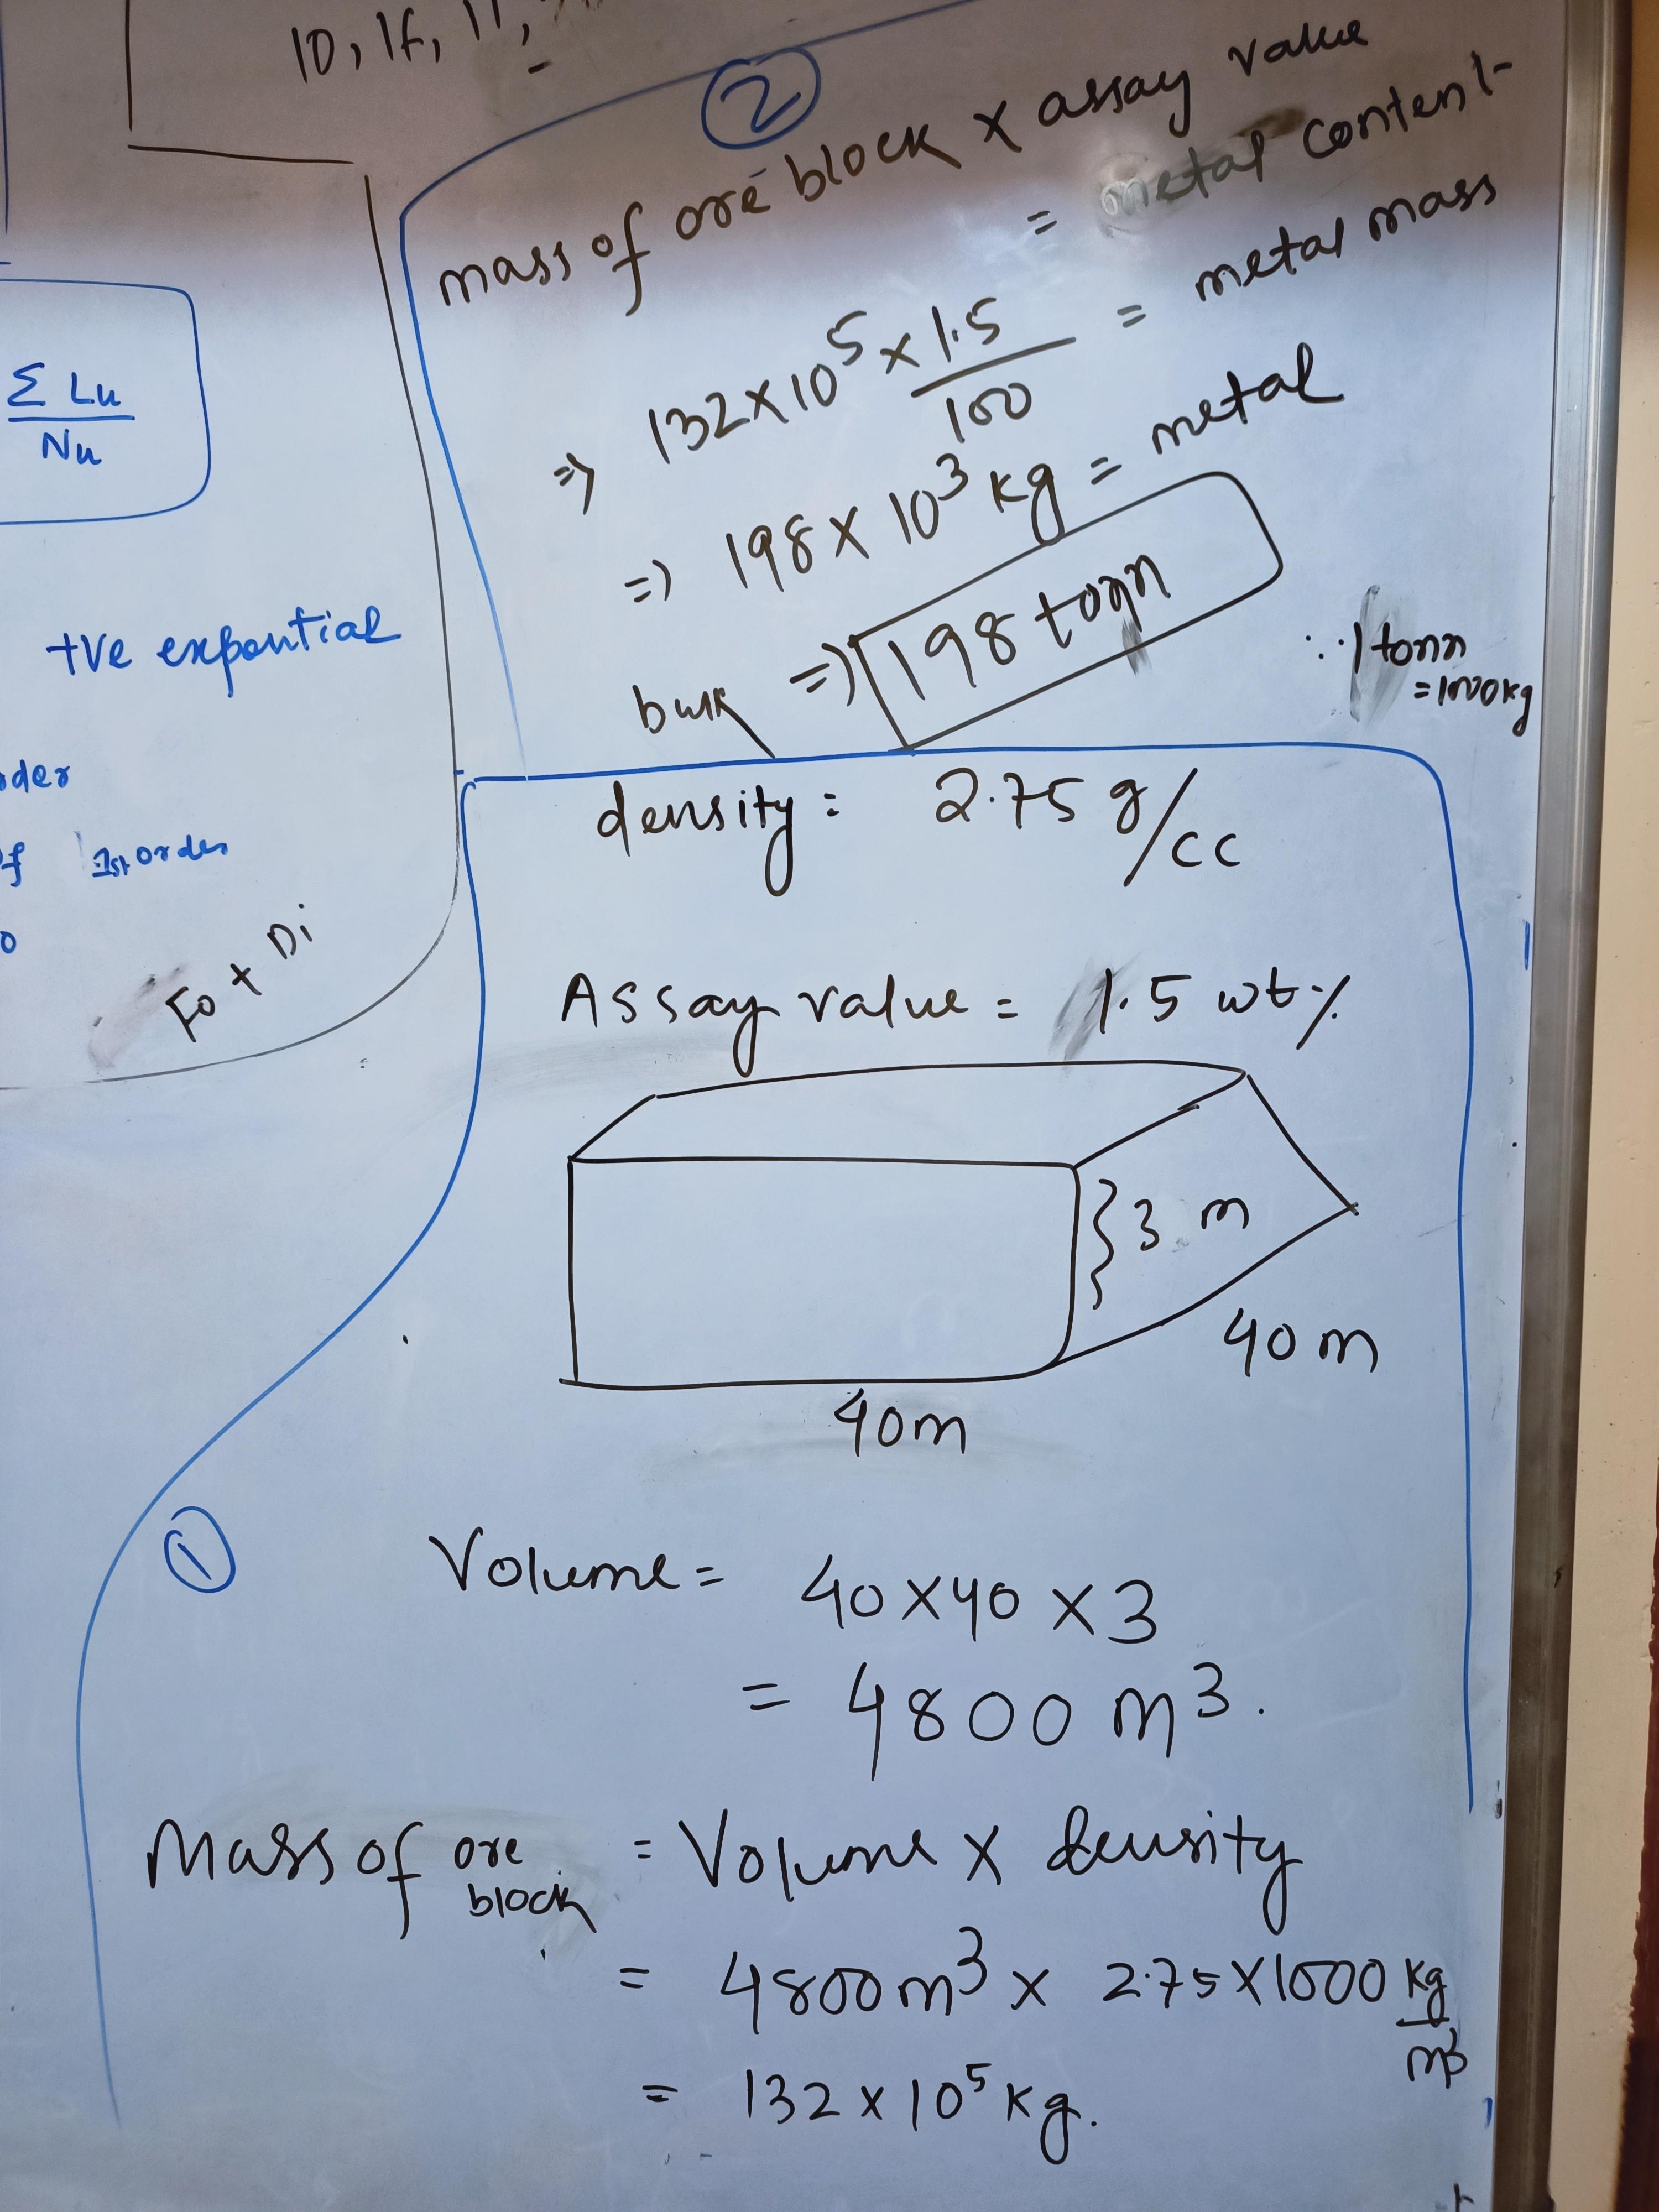 10, 1f, 11,
Σ Lu
Nu
+ve expontial
der
f 1st order
Fo + Di
②
mass of ore block x assay value
= metal content
⇒ 132 x 10⁵ x 1.5 / 100 = metal mass
⇒ 198 x 10³ kg = metal
⇒ 198 tonn
∵ 1 tonn
= 1000 kg
bulk
density : 2.75 g/cc
Assay value = 1.5 wt%
3 m
40 m
40m
①
Volume = 40 x 40 x 3
= 4800 m³.
Mass of ore block = Volume x density
= 4800 m³ x 2.75 x 1000 kg/m³
= 132 x 10⁵ kg.